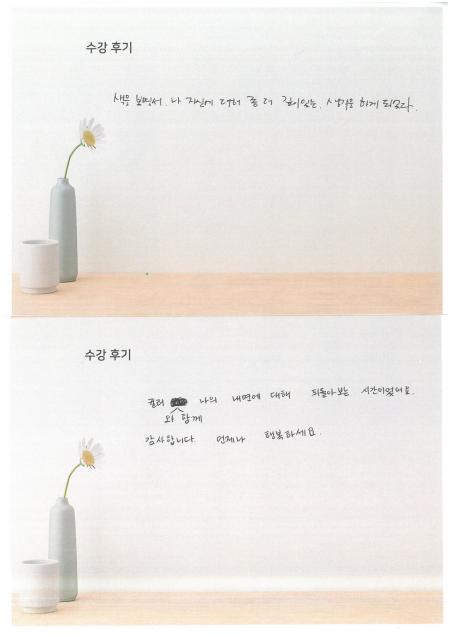 수강 후기
색을 보면서, 나 자신에 대해 좀 더 깊이있는, 생각을 하게 되었다.
수강 후기
컬러 나의 내면에 대해 되돌아보는 시간이었어요.
와 함께
감사합니다. 언제나 행복하세요.